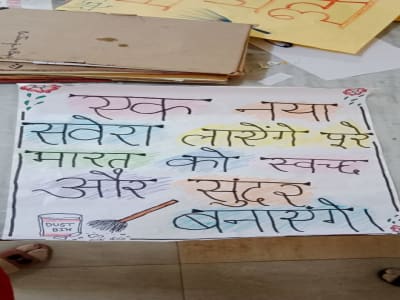 एक नया
सवेरा लाऐंगे पूरे
भारत को स्वच्छ
और सुंदर
बनाएंगे।
DUST
BIN